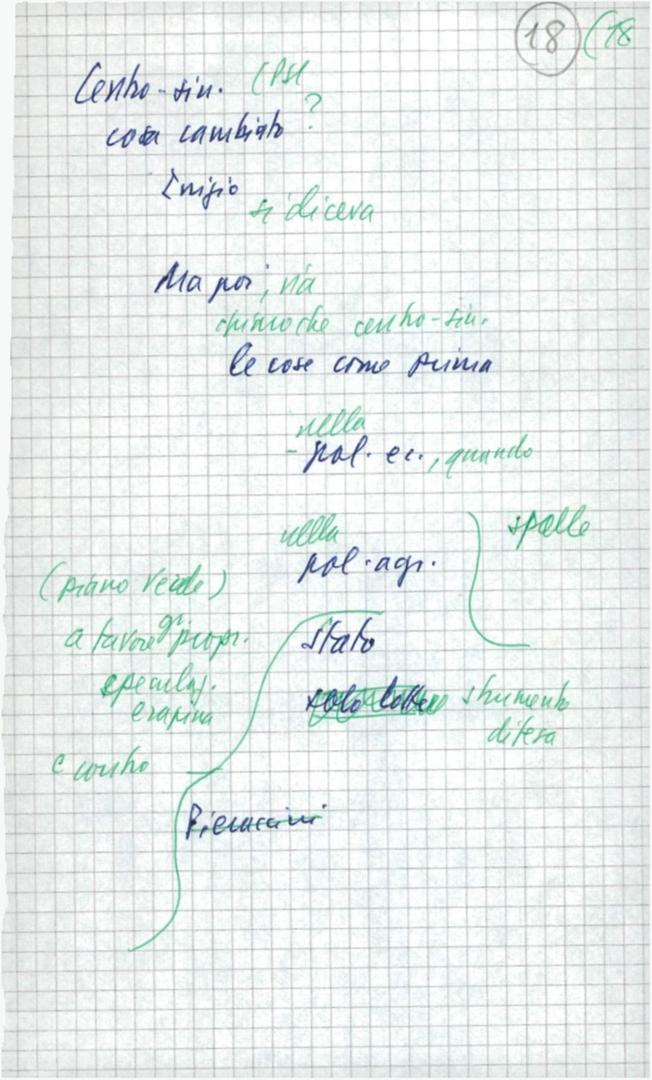 18 (18
Centro-sin. (PSI
cosa cambiato ?
Inizio
si diceva
Ma poi, via
che centro-sin.
le cose come prima
nella
- pol. ec., quando
nella
spalle
pol. agr.
(piano verde)
a favore gr. propr.
stato
speculaz.
e rapina
solo lotte strumento
difesa
e contro
Pieraccini